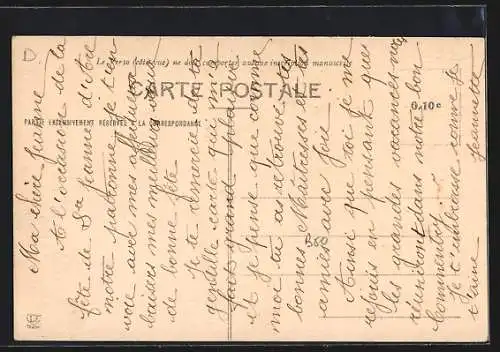 Le Verso (côté vue) ne doit comporter aucune inscription manuscrite
CARTE POSTALE
PARTIE EXCLUSIVEMENT RÉSERVÉE A LA CORRESPONDANCE
0,10c
Ma chère Jeanne
A l'occasion de la
fête de Ste Jeanne d'Arc
notre patronne je t'envoie
avec mes affectueux
baisers mes meilleurs vœux
de bonne fête
Je te remercie de ta
gentille carte qui m'a
fait grand plaisir
et je pense que comme
moi tu as retrouvé tes
bonnes Maîtresses et tes
amies avec joie
Ainsi que toi je me
réjouis en pensant que
les grandes vacances nous
réuniront dans notre bon
Commentry
Je t'embrasse comme je
t'aime Jeannette